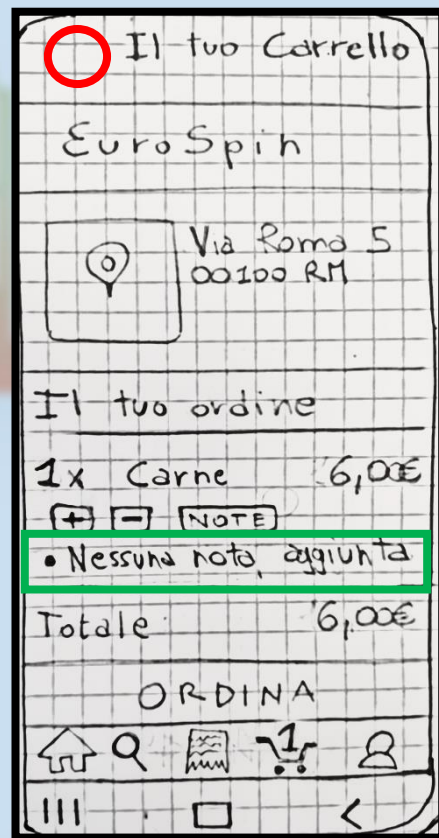 Il tuo Carrello
EuroSpin
Via Roma 5
00100 RM
Il tuo ordine
1x Carne 6,00€
+ - NOTE
• Nessuna nota aggiunta
Totale 6,00€
ORDINA
1